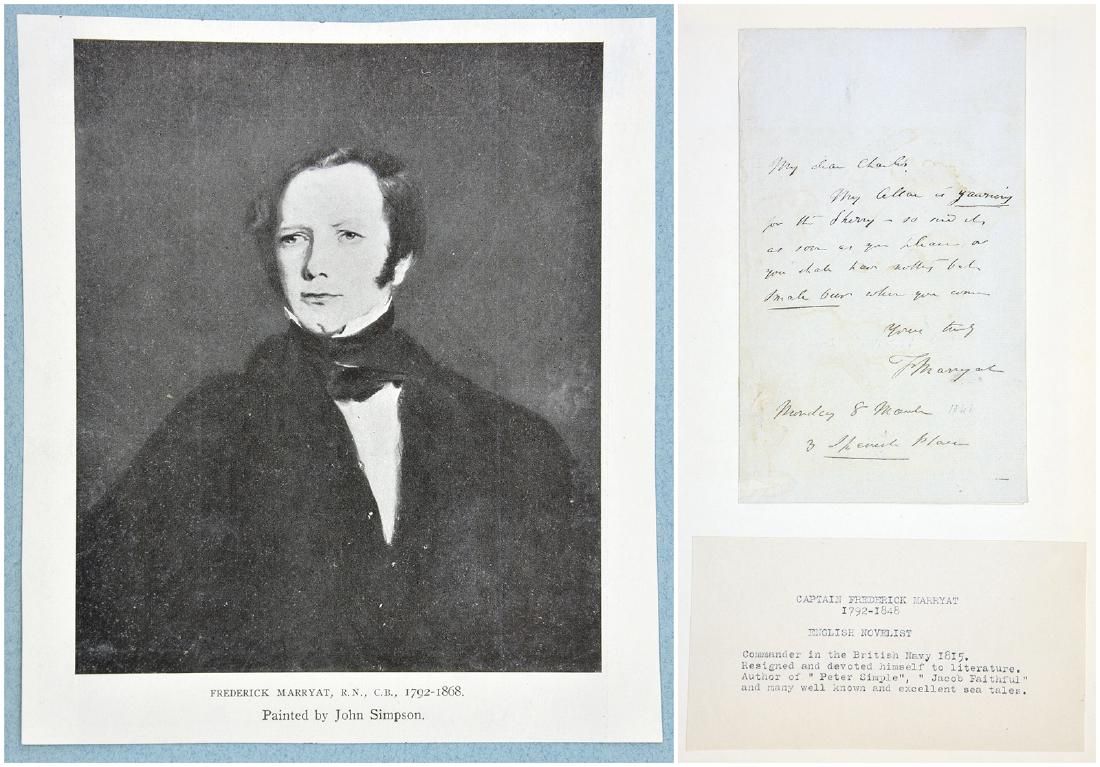 FREDERICK MARRYAT, R.N., C.B., 1792-1868.
Painted by John Simpson.
My dear Charles,
My Cellar is yawning
for the Sherry - so send it,
as soon as you please or
you shall have nothing but
small beer when you come
Yours truly
F Marryat
Monday 8 March 1841
3 Spanish Place
CAPTAIN FREDERICK MARRYAT
1792-1848
ENGLISH NOVELIST
Commander in the British Navy 1815.
Resigned and devoted himself to literature.
Author of " Peter Simple", " Jacob Faithful"
and many well known and excellent sea tales.